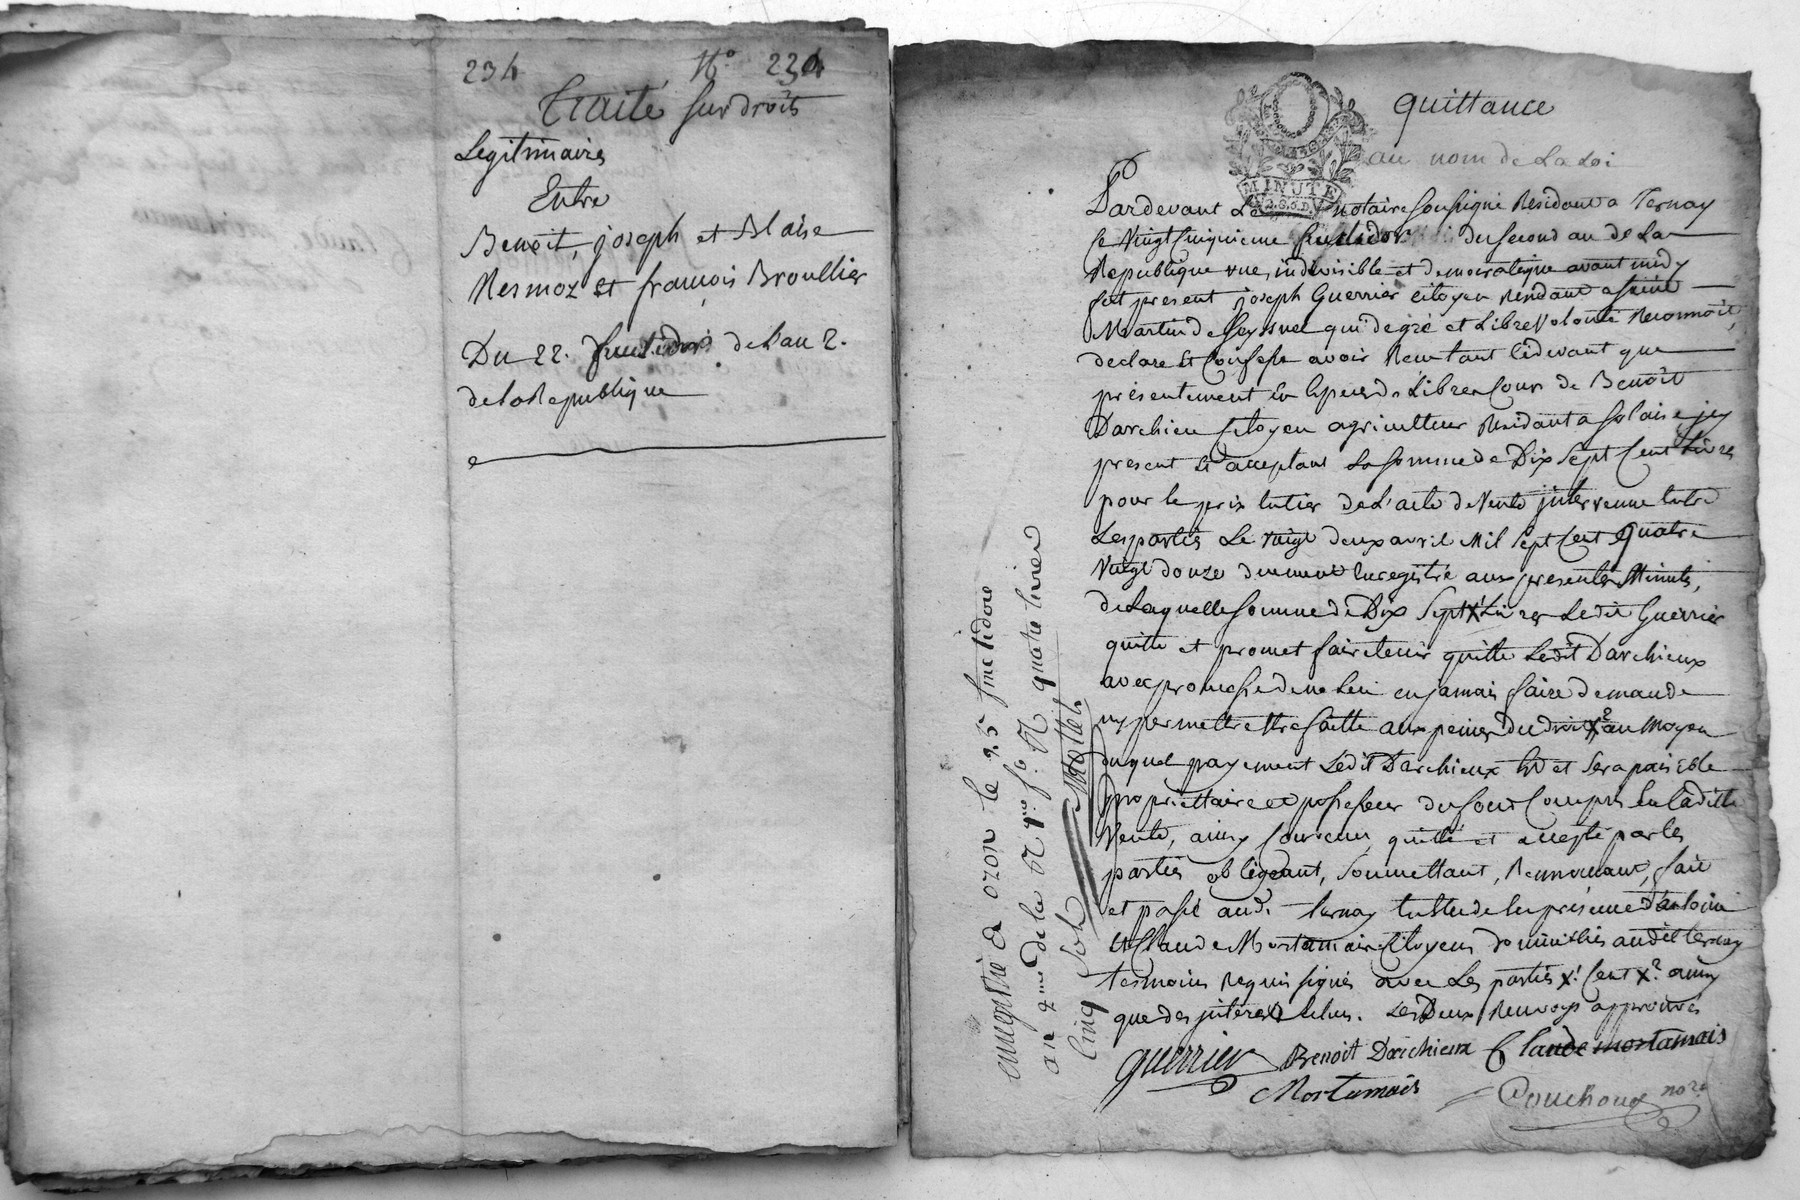 234 No 234
Traité sur droits
Legitimaires
Entre
Benoit, joseph et Blaise
Nesmoz et françois Broullier
Du 22. fructidor de L'an 2.
de la Republique
quittance
au nom de La Loi
MINUTE
Pardevant Le notaire soussigné Residant a Ternay
le vingt cinquieme fructidor du second an de La
Republique une, indivisible et democratique avant midy
fut present joseph Guerrier citoyen Residant a saint
Martin de seyssuel qui de gré et Libre volonté Reconnoit,
declare et confesse avoir Reçu tant cidevant que
présentement en especes de Libre cour de Benoit
Darchieu citoyen agriculteur Residant a solaise jcy
present et acceptant La somme de Dix sept cent Livres
pour le prix entier de L'acte de vente jntervenue entre
Les parties Le vingt deux avril Mil sept cent quatre
vingt douze duement enregistré aux presentes Minutes,
de Laquelle somme de Dix sept x1 Livres Ledit Guerrier
quitte et promet faire tenir quitte Ledit Darchieux
avec promesse de ne Lui en jamais faire demande
ny permettre etre faitte aux peines du droit x2 au moyen
duquel payement Ledit Darchieux est et sera paisible
proprietaire et possesseur du fond compris en Laditte
vente, ainsy convenu, quitté et accepté par les
parties obligeant, soumettant, Renonceant, fait
et passé aud. ternay etude en presence d'antoine
et Claude Mortamais citoyens domiciliés audit ternay
temoins Requis signés avec Les parties x1 cent x2 ainsy
que des jnterets echus. Les Deux Renvoys approuvés
guerrier Benoit Darchieux Claude mortamais
Mortamais
Couchoux nore
enregistré à ozon le 25 fructidore
an 2me de la R 1me fo. R quatre livres
cinq sols Mottet